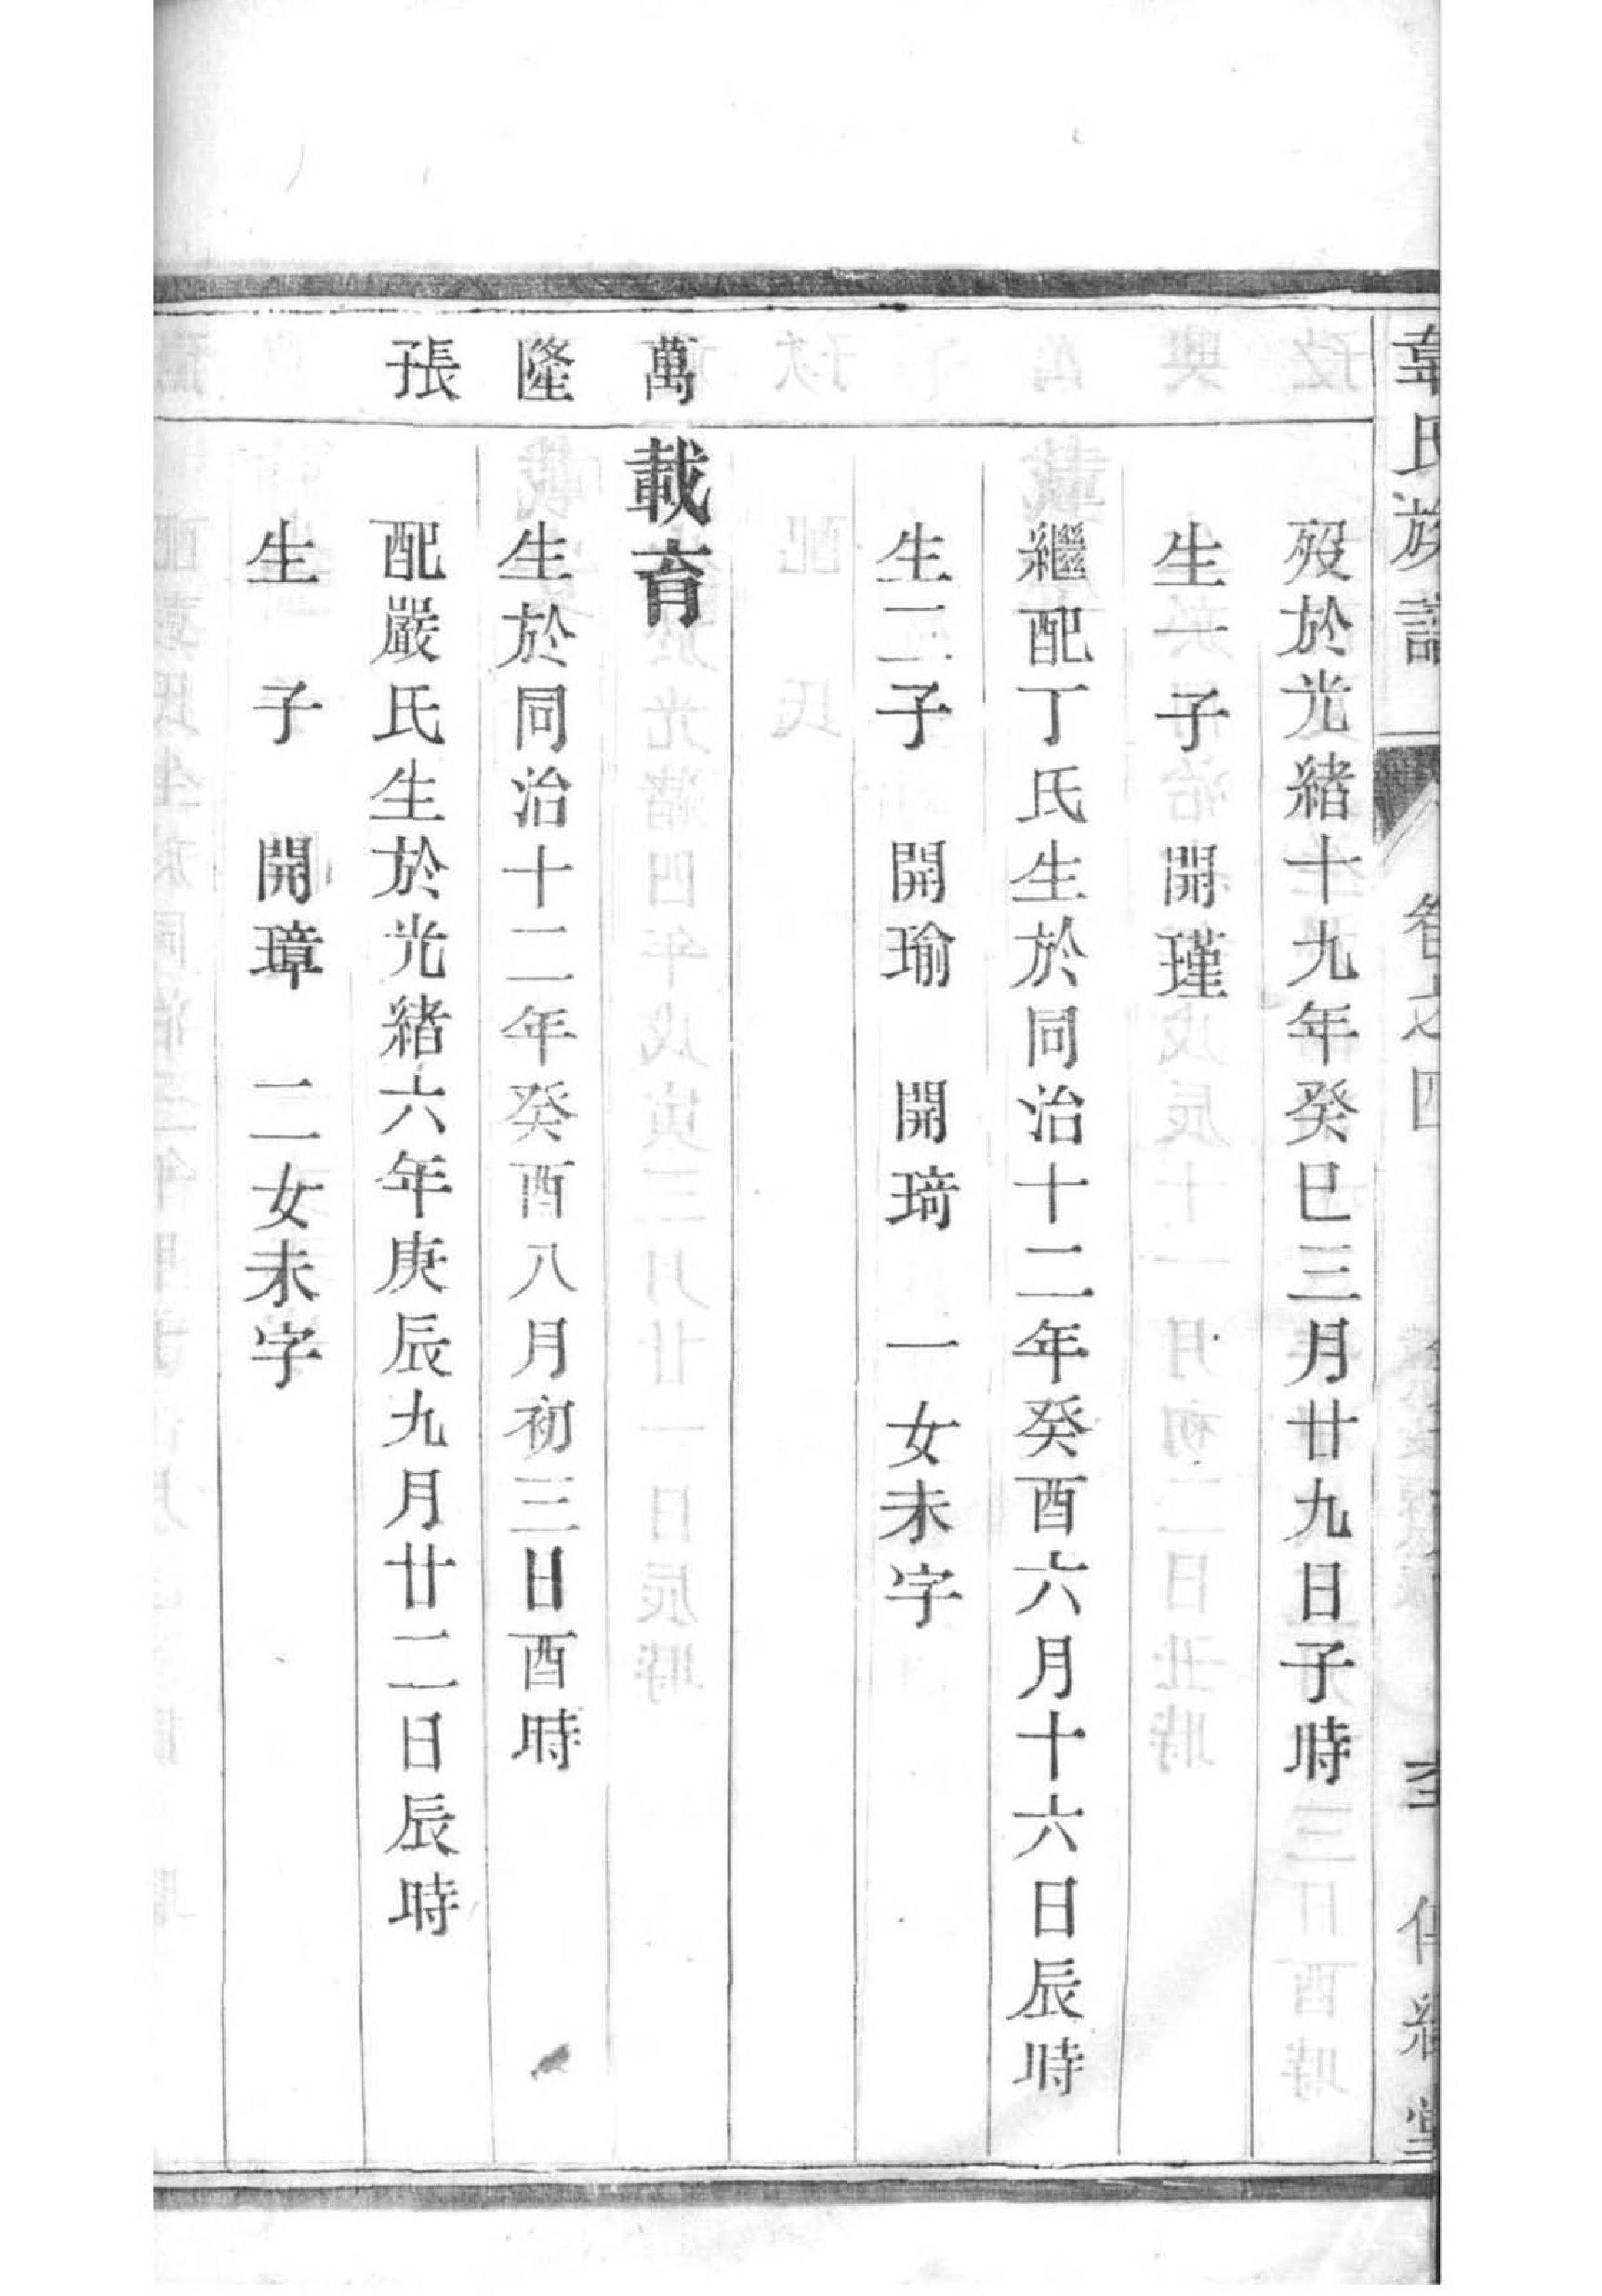 韋氏族譜 卷之四
歿於光緒十九年癸巳三月廿九日子時
生一子 開瑾
繼配丁氏生於同治十二年癸酉六月十六日辰時
生二子 開瑜 開琦 一女未字
萬 載育
隆 生於同治十二年癸酉八月初三日酉時
張 配嚴氏生於光緒六年庚辰九月廿二日辰時
生 子 開璋 二女未字